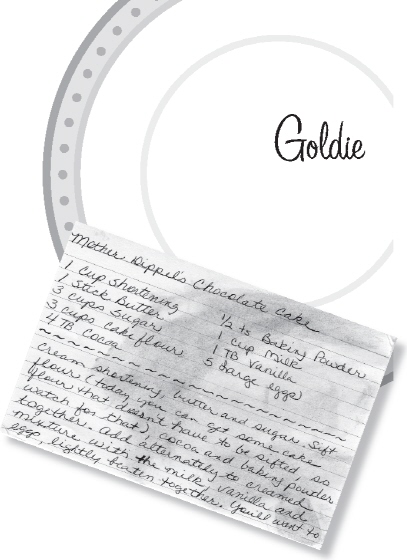 Goldie
Mother Dippel's Chocolate Cake
1 cup shortening
1 Stick Butter
3 cups sugar
3 cups cake flour
4 TB cocoa
1/2 ts Baking Powder
1 cup milk
1 TB Vanilla
5 large eggs
Cream shortening, butter and sugar. Sift
flour (today you can get some cake
flour that doesn't have to be sifted, so
watch for that), cocoa and baking powder
together. Add alternately to creamed
mixture with the milk, vanilla and
eggs, lightly beaten together. You'll want to